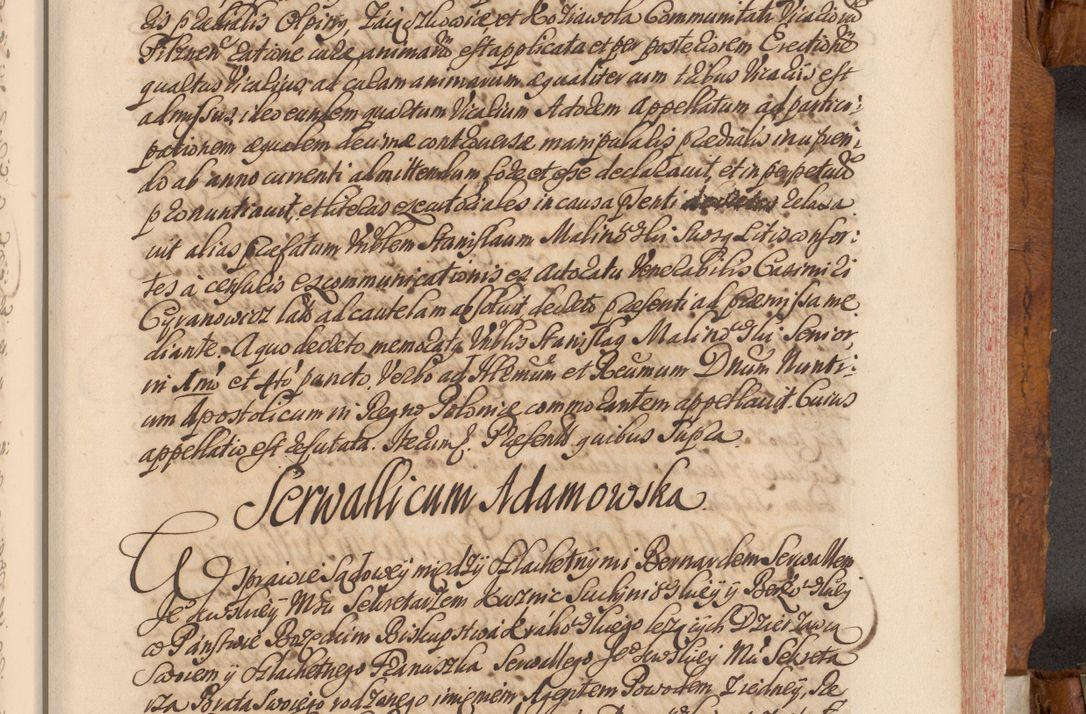 es prædialis Olpiny, Zaiączkowice et Kożiawola Communitati Vicariorũ
Pilznen ratione curæ animarũ est applicata et per posteriorem Erectionẽ
quartus Vicarius ad curam animarum æqualiter cum tribus Vicariis est
admissus, ideo eundem quartum Vicarium Actorem Appellatum ad partici:
pationem æqualem decimæ controversæ manipularis prædialis in upien:
do ab anno currenti admittendum fore et esse declaravit, et in perpetuũ
pronuntiavit, et literas executoriales in causa pnti relaxa
vit alias præfatum Noblem Stanislaum Malinowski suosq Litisconsor:
tes a censuris excommunicationis ex Actoratu Venerabilis Casimiri
Cyranowicz latis ad cautelam absolvit decreto præsenti ad præmissa me
diante. A quo decreto memoratq Noblis Stanislaq Malinowski Senior,
in 1mo et 4to puncto, Verbo ad Illmum et Rmum Dnum Nunti:
um Apostolicum in Regno Poloniæ commorantem appellavit. Cuius
appellatio est refutata. Præsentibq quibus supra.
Serwallicum Adamowska.
W sprawie Sądowey między Szlachetnymi Bernardem Serwallem
Je° Kw Mci Sekretarzem Kuznic Suchiniowskiey y Berżowskiey
w Państwie Brzeskim Biskupstwa Krakowskiego leżących Dzierżawcą
Swoiem y Szlachetnego Franciszka Serwallego Je° Mci Sekreta
rza Brata Swoiego rodzonego imieniem Agentem Powodem, z iedney, Sz